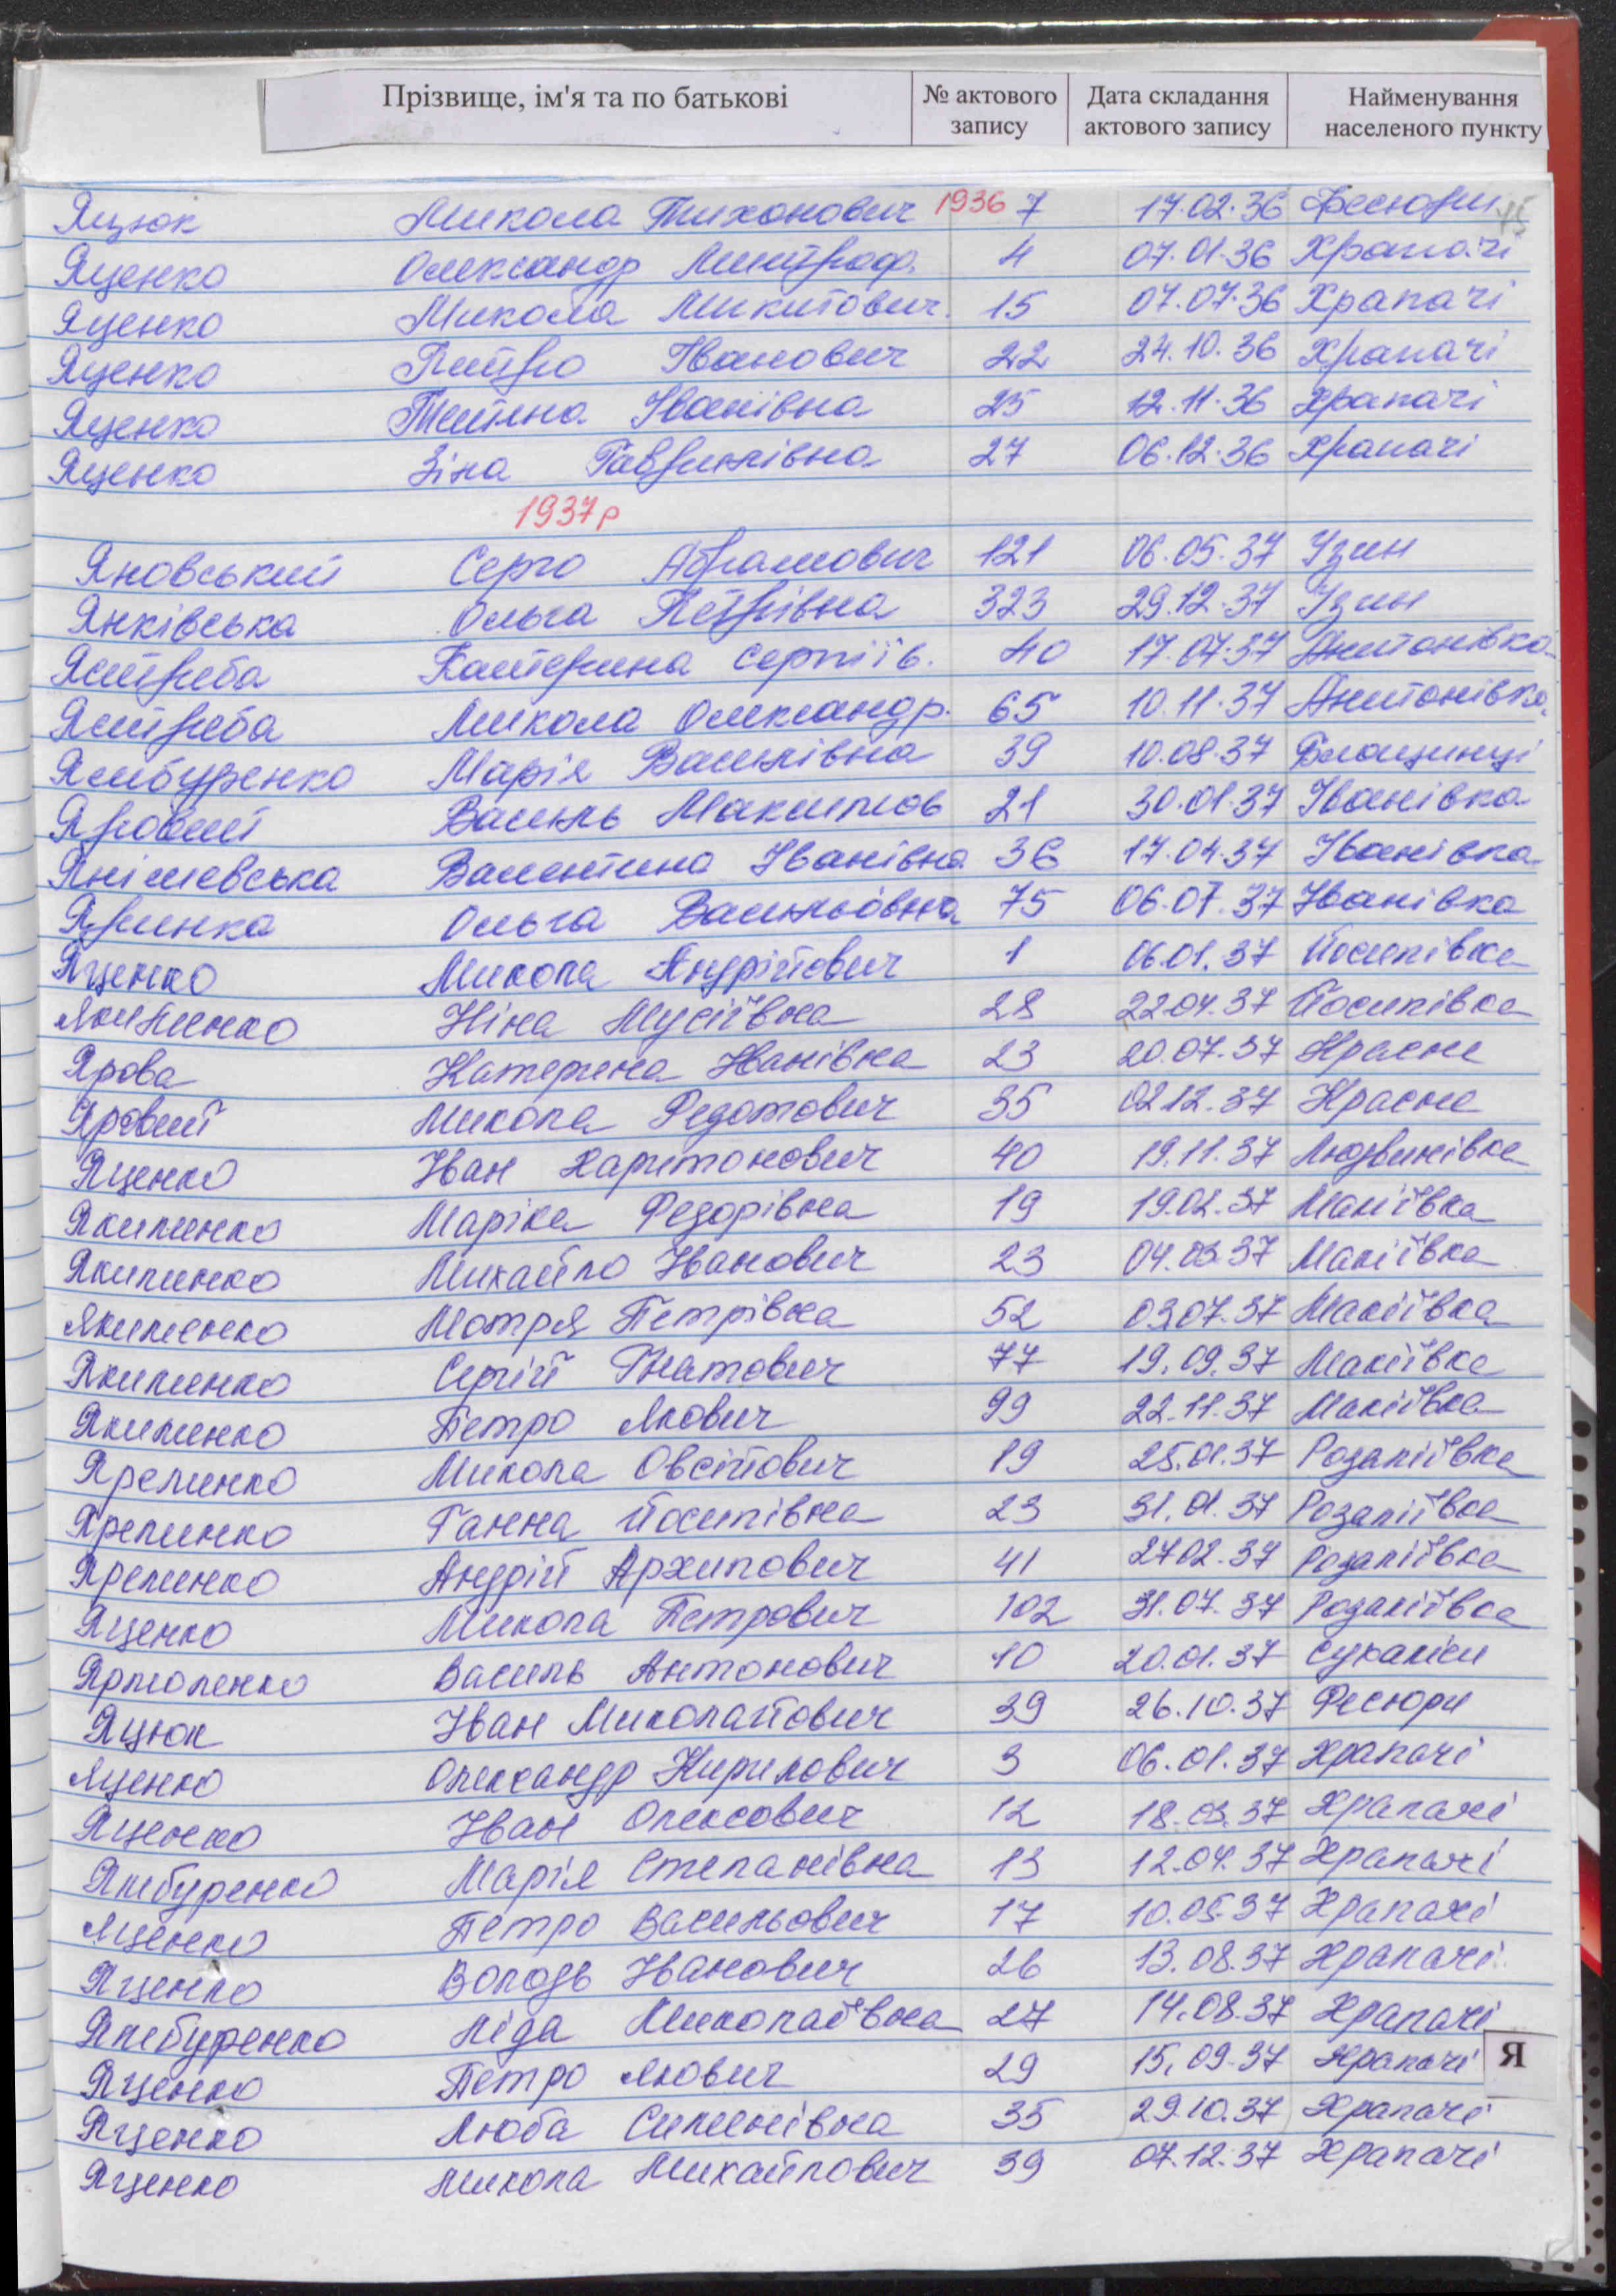 Прізвище, ім'я та по батькові № актового запису Дата складання актового запису Найменування населеного пункту
Яцюк Микола Тихонович 1936 7 17.02.36 Фесюри
Яценко Олександр Митроф. 4 07.01.36 Храпачі
Яценко Микола Микитович. 15 07.07.36 Храпачі
Яценко Петро Іванович 22 24.10.36 Храпачі
Яценко Тетяна Іванівна 25 12.11.36 Храпачі
Яценко Зіна Гаврилівна 27 06.12.36 Храпачі
1937р
Яновський Серго Абрамович 121 06.05.37 Узин
Янківська Ольга Петрівна 323 29.12.37 Узин
Ястреба Катерина Сергіїв. 40 17.07.37 Антонівка
Ястреба Микола Олександр. 65 10.11.37 Антонівка
Ямбуренко Марія Василівна 39 10.08.37 Блощинці
Яровий Василь Максимов 21 30.01.37 Іванівка
Янішевська Валентина Іванівна 36 17.04.37 Іванівка
Яринка Ольга Васильовна 75 06.07.37 Іванівка
Яценко Микола Андрійович 1 06.01.37 Йосипівка
Якименко Ніна Мусіївна 28 22.04.37 Йосипівка
Ярова Катерена Іванівна 23 20.07.37 Красне
Яровий Микола Федотович 35 02.12.37 Красне
Яценко Іван Харитонович 40 19.11.37 Людвинівка
Якименко Маріка Федорівна 19 19.02.37 Макіївка
Якименко Михайло Іванович 23 04.03.37 Макіївка
Якименко Мотря Петрівна 52 03.07.37 Макіївка
Якименко Сергій Гнатович 77 19.09.37 Макіївка
Якименко Петро Якович 99 22.11.37 Макіївка
Яременко Микола Овсійович 19 25.01.37 Розаліївка
Яременко Ганна Йосипівна 23 31.01.37 Розаліївка
Яременко Андрій Архипович 41 27.02.37 Розаліївка
Яценко Микола Петрович 102 31.07.37 Розаліївка
Ярмоленко Василь Антонович 10 20.01.37 Сухоліси
Яцюк Іван Миколайович 39 26.10.37 Фесюри
Яценко Олександр Кирилович 3 06.01.37 Храпачі
Яценко Іван Олексович 12 18.03.37 Храпачі
Ямбуренко Марія Степанівна 13 12.04.37 Храпачі
Яценко Петро Васильович 17 10.05.37 Храпачі
Яценко Володь Іванович 26 13.08.37 Храпачі
Ямбуренко Ліда Миколаївна 27 14.08.37 Храпачі
Яценко Петро Якович 29 15.09.37 Храпачі Я
Яценко Люба Сименівна 35 29.10.37 Храпачі
Яценко Микола Михайлович 39 07.12.37 Храпачі